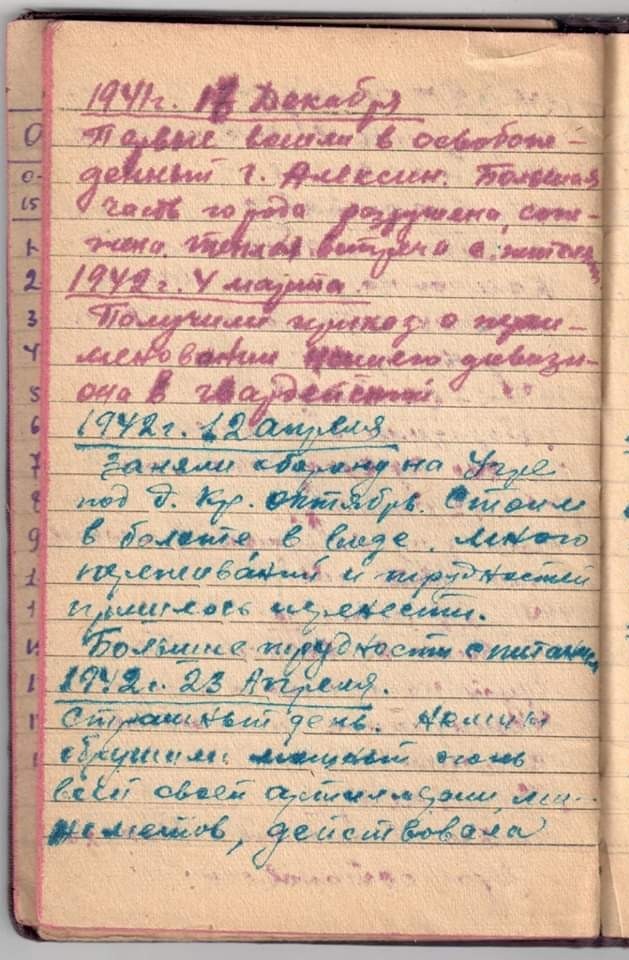 1941г. 17 Декабря
Первые вошли в освобож-
денный г. Алексин. Большая
часть города разрушена, сож-
жена. Теплая встреча с жителями.
1942г. 4 марта.
Получили приказ о переи-
меновании нашего дивизи-
она в гвардейский.
1942г. 12 апреля
Заняли оборону на Угре
под д. Кр. октябрь. Стоим
в болоте в воде. Много
переживаний и трудностей
пришлось перенести.
Большие трудности с питанием
1942г. 23 Апреля.
Страшный день. Немцы
обрушили мощный огонь
всей своей артиллерии, ми-
нометов, действовала
0
0
15
1
2
3
4
5
6
7
8
9
1
1
1
1
1
1